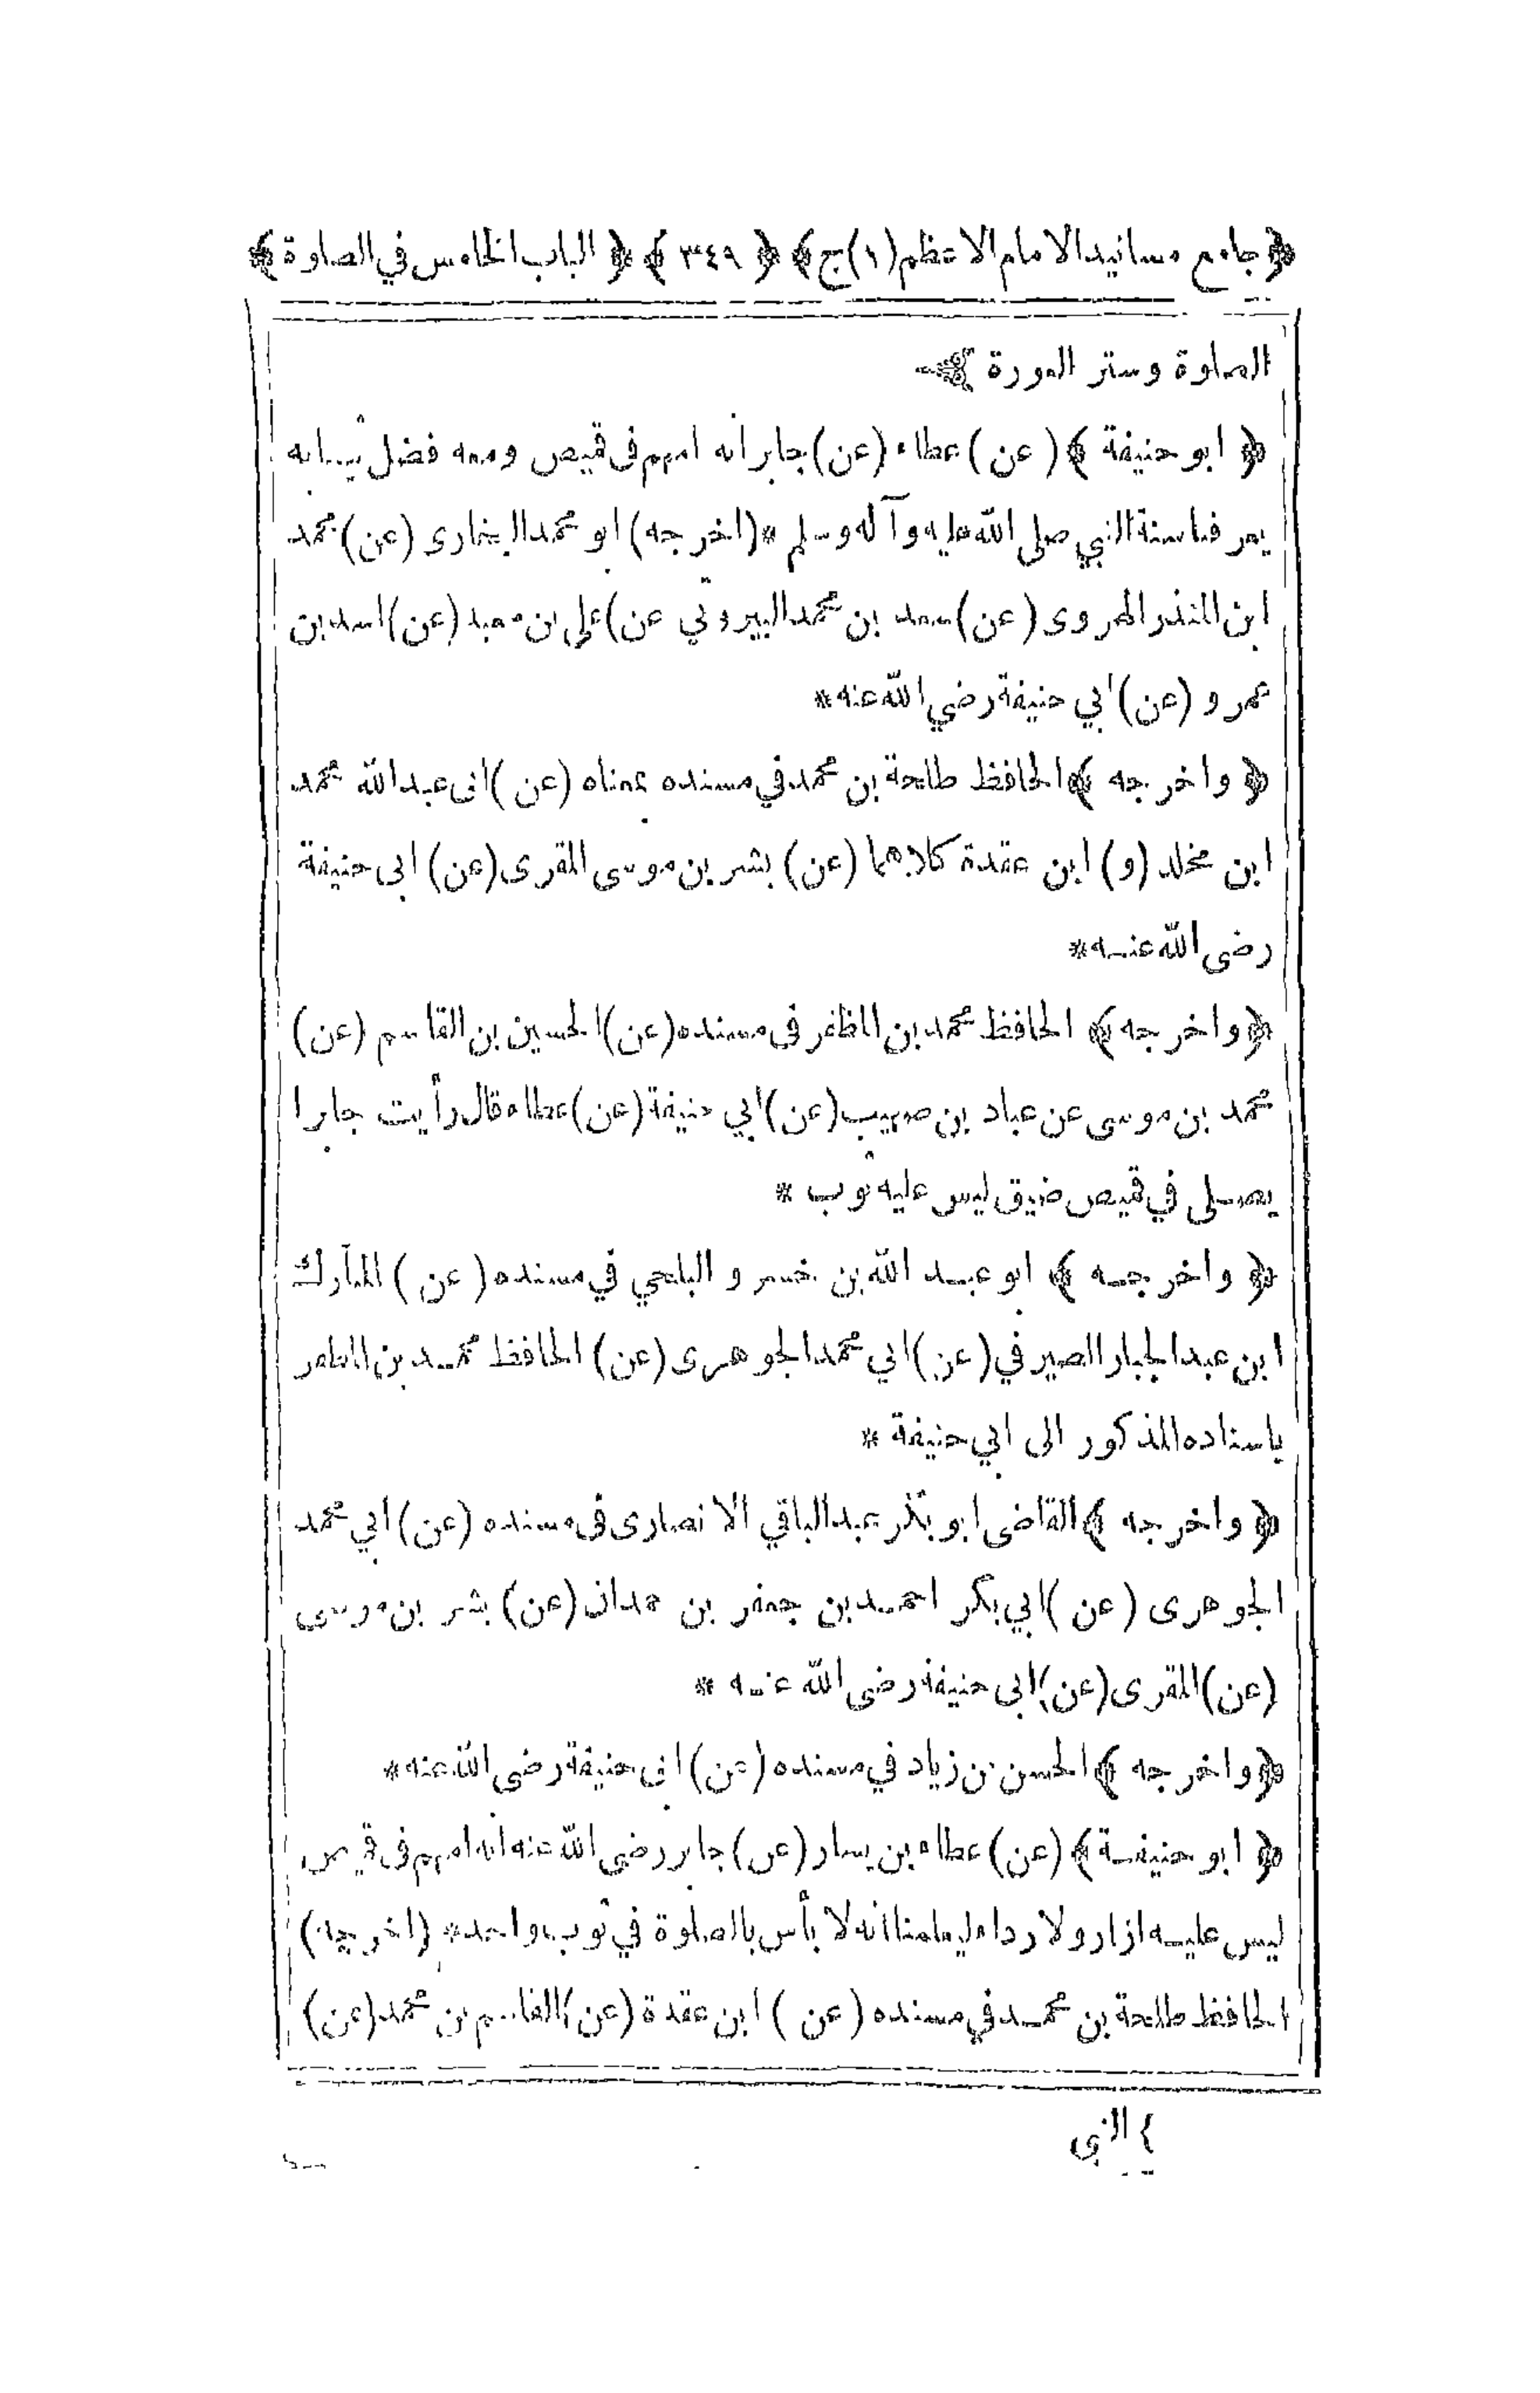 ﴿جامع مسانيد الامام الاعظم(١)ج﴾ ﴿ ٣٤٩ ﴾ ﴿ الباب الخامس في الصلوة ﴾
الصلوة وستر العورة
﴿ ابو حنيفة ﴾ ( عن ) عطاء (عن) جابر انه امهم فى قميص ومعه فضل ثيابه
يعرفنا سنة النبي صلى الله عليه وآله وسلم * (اخرجه) ابو محمد البخارى (عن) محمد
ابن المنذر الهروى (عن) سعد بن محمد البيروتي عن) على بن معبد (عن) اسد بن
عمرو (عن) ابي حنيفة رضي الله عنه *
﴿ واخرجه ﴾ الحافظ طلحة بن محمد في مسنده بمعناه (عن ) ابى عبد الله محمد
ابن مخلد (و) ابن عقدة كلاهما (عن) بشر بن موسى المقرى (عن) ابى حنيفة
رضى الله عنه *
﴿واخرجه ﴾ الحافظ محمد بن المظفر فى مسنده (عن) الحسين بن القاسم (عن)
محمد بن موسى عن عباد بن صهيب (عن) ابي حنيفة (عن) عطاء قال رأيت جابرا
يصلى في قميص ضيق ليس عليه ثوب *
﴿ واخرجه ﴾ ابو عبد الله بن خسرو البلخي في مسنده ( عن ) المبارك
ابن عبد الجبار الصيرفي (عن) ابي محمد الجوهرى (عن) الحافظ محمد بن المظفر
باسناده المذكور الى ابي حنيفة *
﴿ واخرجه ﴾ القاضى ابو بكر عبد الباقي الانصارى فى مسنده (عن) ابي محمد
الجوهرى ( عن ) ابي بكر احمد بن جعفر بن حمدان (عن) بشر بن موسى
(عن) المقرى (عن) ابى حنيفة رضى الله عنه *
﴿ واخرجه ﴾ الحسن بن زياد في مسنده (عن) ابى حنيفة رضى الله عنه *
﴿ ابو حنيفة ﴾ (عن) عطاء بن يسار (عن) جابر رضى الله عنه انه امهم فى قميص
ليس عليه ازار ولا رداء ليعلمنا انه لا بأس بالصلوة في ثوب واحد * (اخرجه)
الحافظ طلحة بن محمد في مسنده ( عن ) ابن عقدة (عن) القاسم بن محمد (عن)